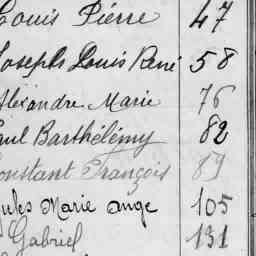 Louis Pierre 47
Joseph Louis René 58
Alexandre Marie 76
Paul Barthélémy 82
Constant François 89
Jules Marie ange 105
Gabriel 131